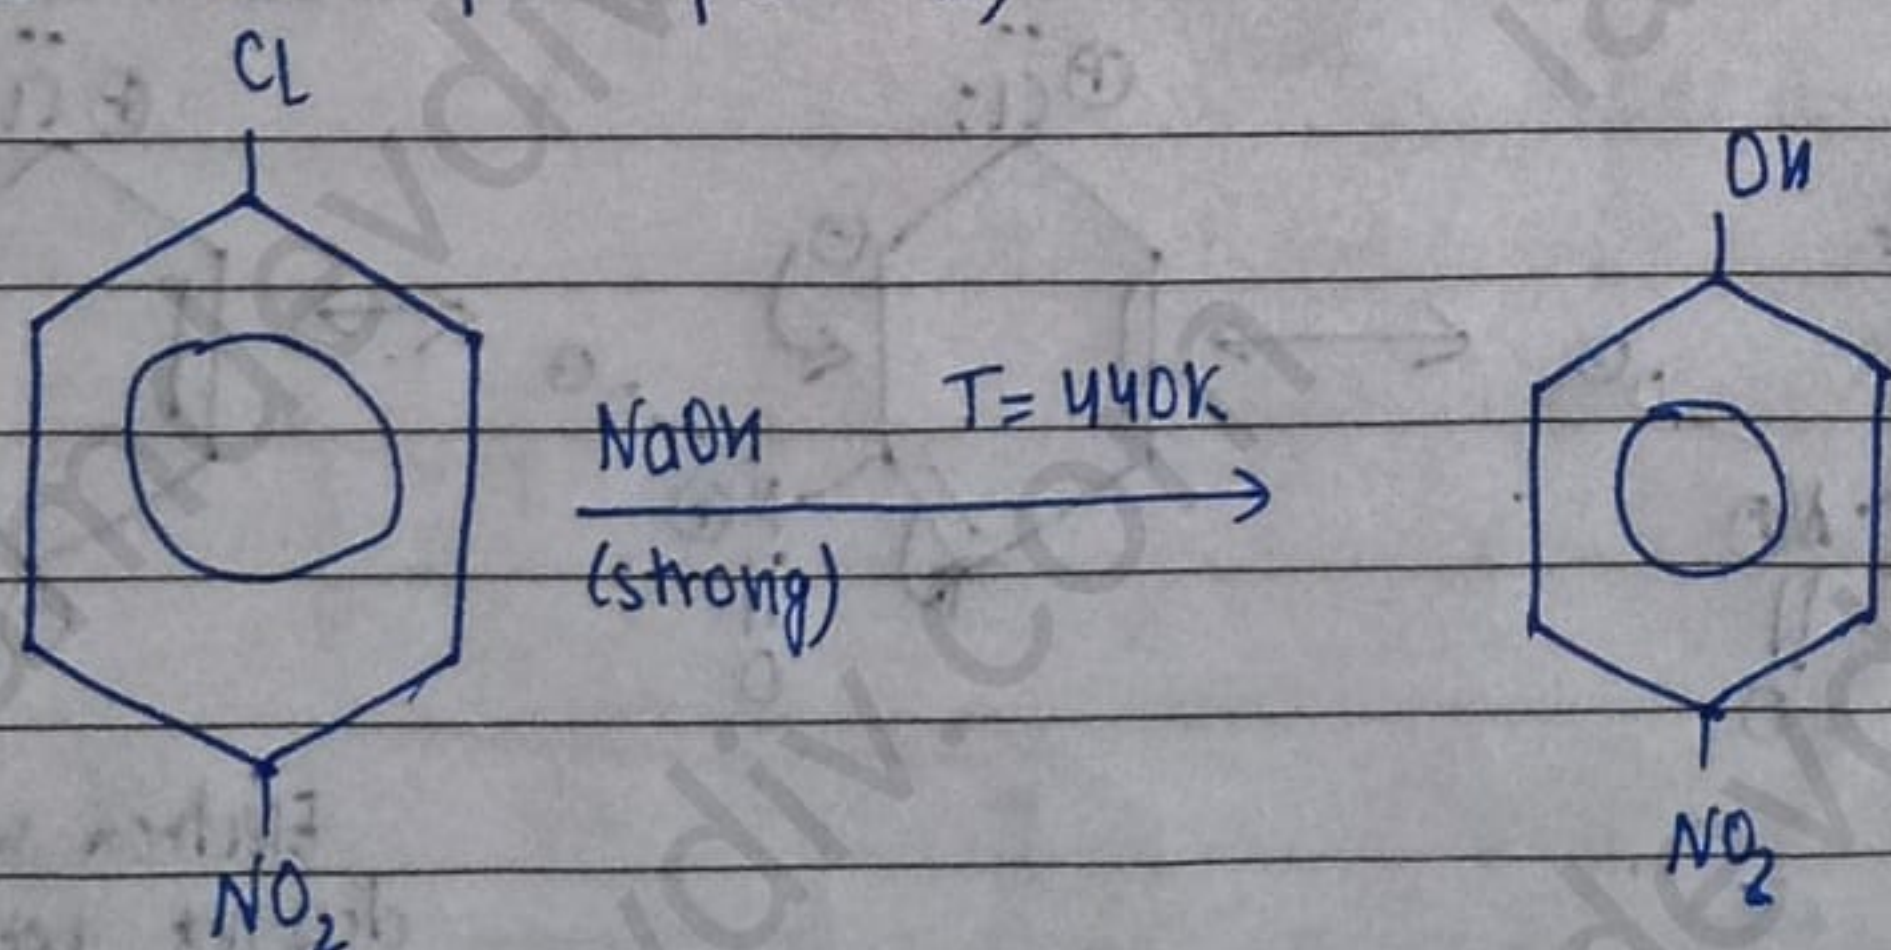 Cl
OH
NaOH T= 440K
(strong)
NO2
NO2